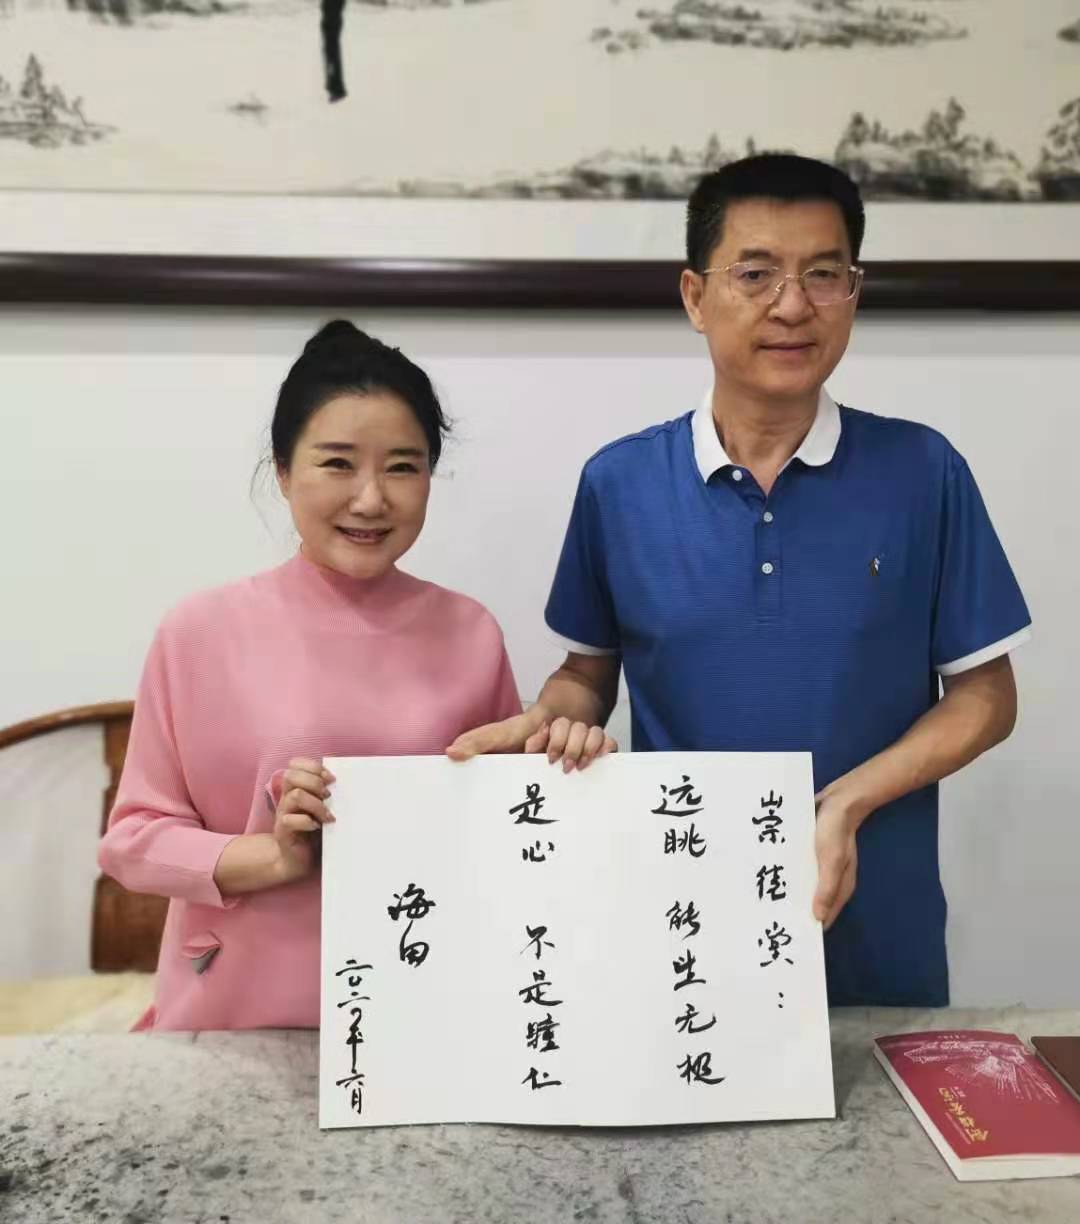 崇德堂：
远眺 能生无极
是心 不是瞳仁
海田
二〇二〇年六月